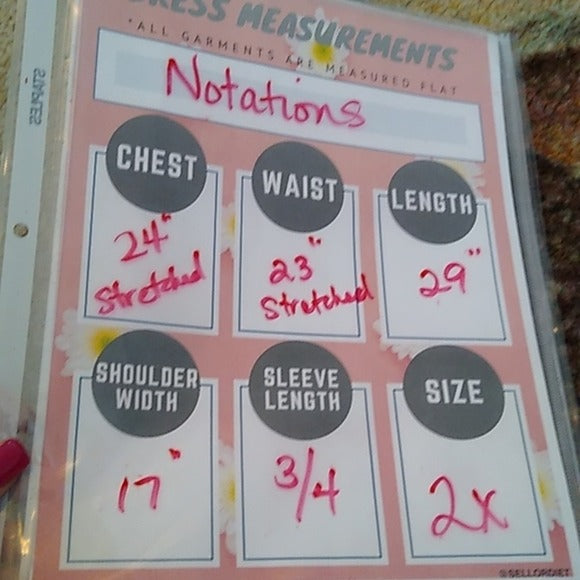 DRESS MEASUREMENTS
*ALL GARMENTS ARE MEASURED FLAT
Notations
STAPLES
CHEST
24"
Stretched
WAIST
23"
Stretched
LENGTH
29"
SHOULDER
WIDTH
17"
SLEEVE
LENGTH
3/4
SIZE
2X
@SELLORDIET